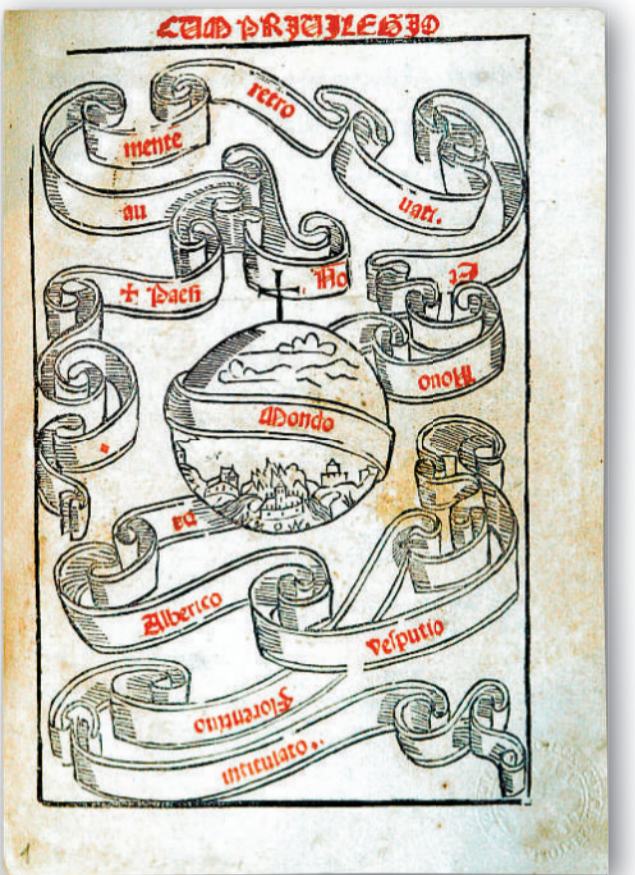 CUM PRIUILEGIO
✠ Paesi
No
ua
mente
retro
uati.
Et
Nouo
Mondo
da
Alberico
Vesputio
Florentino
intitulato..
1